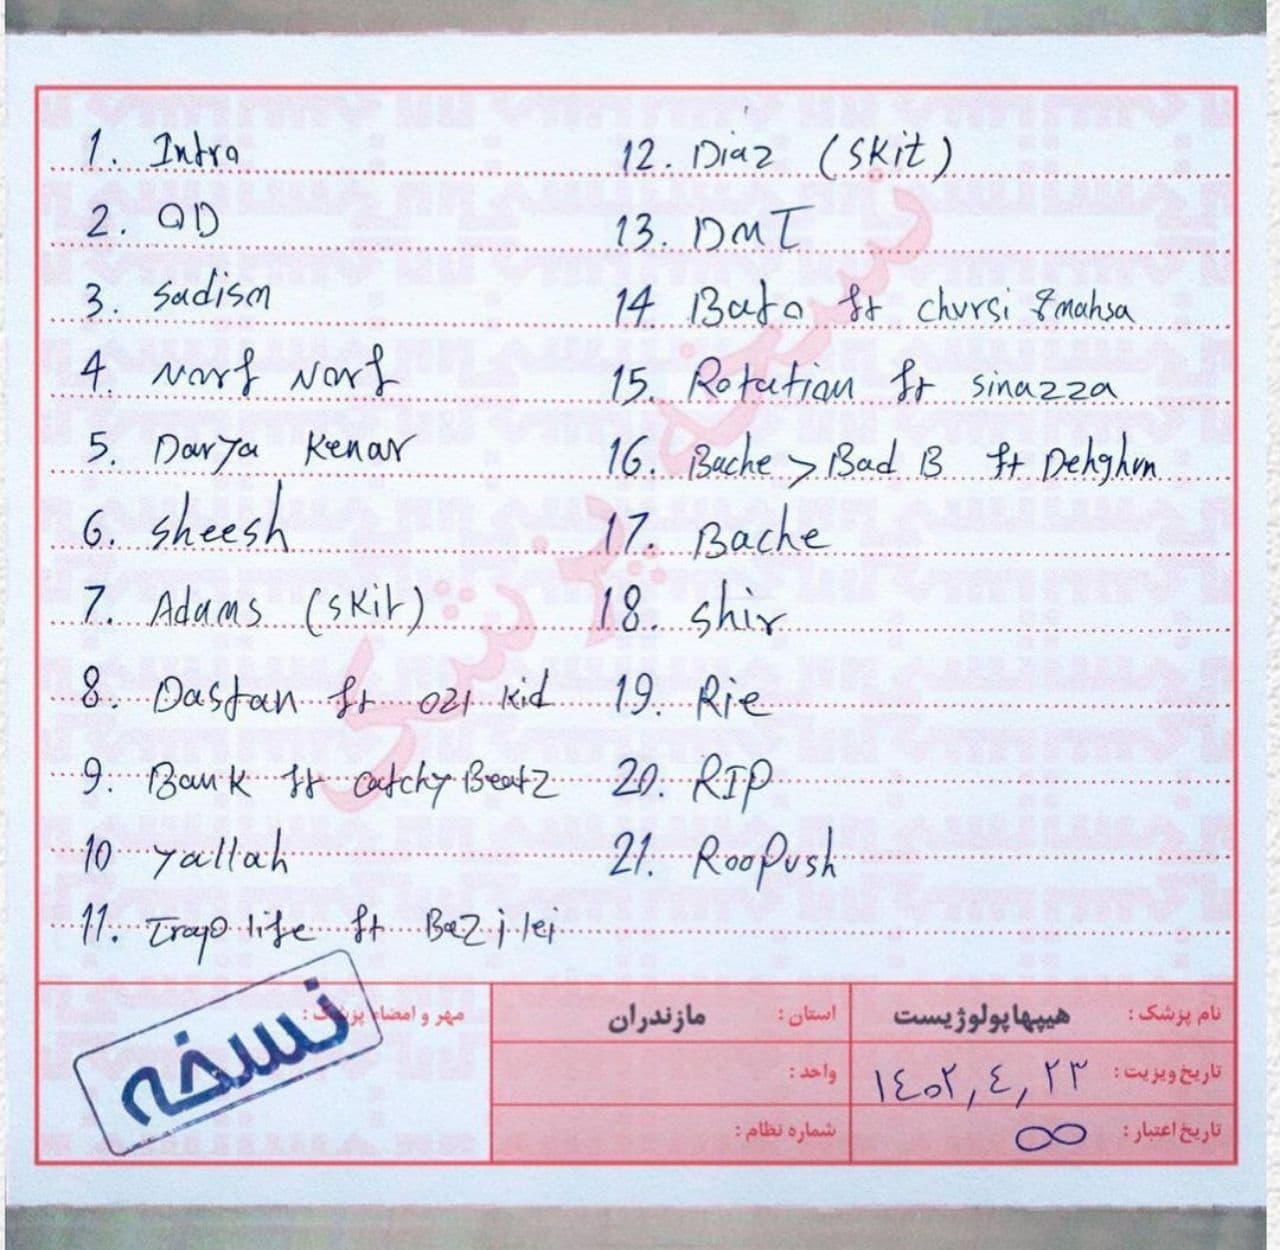 1. Intro
2. QD
3. Sadism
4. Norf Norf
5. Darya Kenar
6. Sheesh
7. Adams (Skit)
8. Dastan ft 021 Kid
9. Bank ft Catchy Beatz
10 Yallah
11. Trap life ft
12. Diaz (Skit)
13. DMT
14. Bato ft chvrsi & mahsa
15. Rotation ft Sinazza
16. Bache > Bad B ft Dehghvn
17. Bache
18. Shir
19. Rie
20. RIP
21. RooPush
نسخه پزشکی
نام پزشک: هیپهاپولوژیست
استان: مازندران
مهر و امضاء پزشک:
نسخه
تاریخ ویزیت: ۱٤۰۲,٤,۲۳
واحد:
تاریخ اعتبار: ∞
شماره نظام: